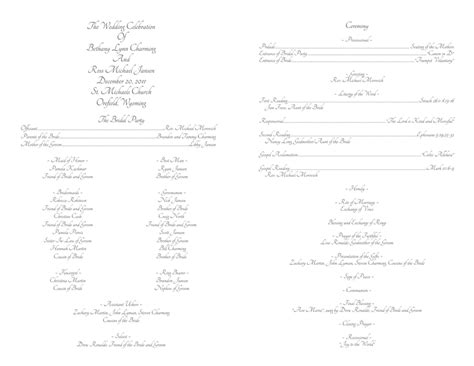 The Wedding Celebration
Of
Bethany Lynn Charming
And
Ross Michael Jansen
December 20, 2011
St. Michaels Church
Orfield, Wyoming
The Bridal Party
Officiant Rev. Michael
Parents of the Bride Brandon and Tammy Charming
Mother of the Groom Libby Jansen
~ Maid of Honor ~
Pamela Kirchner
Friend of Bride and Groom
~ Bridesmaids ~
Rebecca Robinson
Friend of Bride and Groom
Christina Cash
Friend of Bride and Groom
Pamela Pierce
Sister-In-Law of Groom
Hannah Martin
Cousin of Bride
~ Flowergirl ~
Christina Martin
Cousin of Bride
~ Best Man ~
Ryan Jansen
Brother of Groom
~ Groomsmen ~
Nick Jansen
Brother of Groom
Craig North
Friend of Groom
Scott Jansen
Brother of Groom
Bill Charming
Brother of Bride
~ Ring Bearer ~
Brandon Jansen
Nephew of Groom
~ Assistant Ushers ~
Zachary Martin, John Lyman, Steven Charming
Cousins of the Bride
~ Soloist ~
Drew Ronalds, Friend of the Bride and Groom
Ceremony
~ Processional ~
Prelude Seating of the Mothers
Entrance of Bridal Party "Canon in D"
Entrance of Bride "Trumpet Voluntary"
~ Greeting ~
Rev. Michael
~ Liturgy of the Word ~
First Reading Sirach 26:1-4,16-21
Jan Jones, Aunt of the Bride
Responsorial "The Lord is Kind and Merciful"
Second Reading Ephesians 5:2a,25-32
Nancy Long, Godmother/Aunt of the Bride
Gospel Acclamation "Celtic Alleluia"
Gospel Reading Mark 10:6-9
Rev. Michael
~ Homily ~
~ Rite of Marriage ~
Exchange of Vows
Blessing and Exchange of Rings
~ Prayer of the Faithful ~
Lisa Ronalds, Godmother of the Bride
~ Presentation of the Gifts ~
Zachary Martin, John Lyman, Steven Charming, Cousins of the Bride
~ Sign of Peace ~
~ Communion ~
~ Final Blessing ~
"Ave Maria", sung by Drew Ronalds, Friend of the Bride and Groom
~ Closing Prayer ~
~ Recessional ~
"Joy to the World"